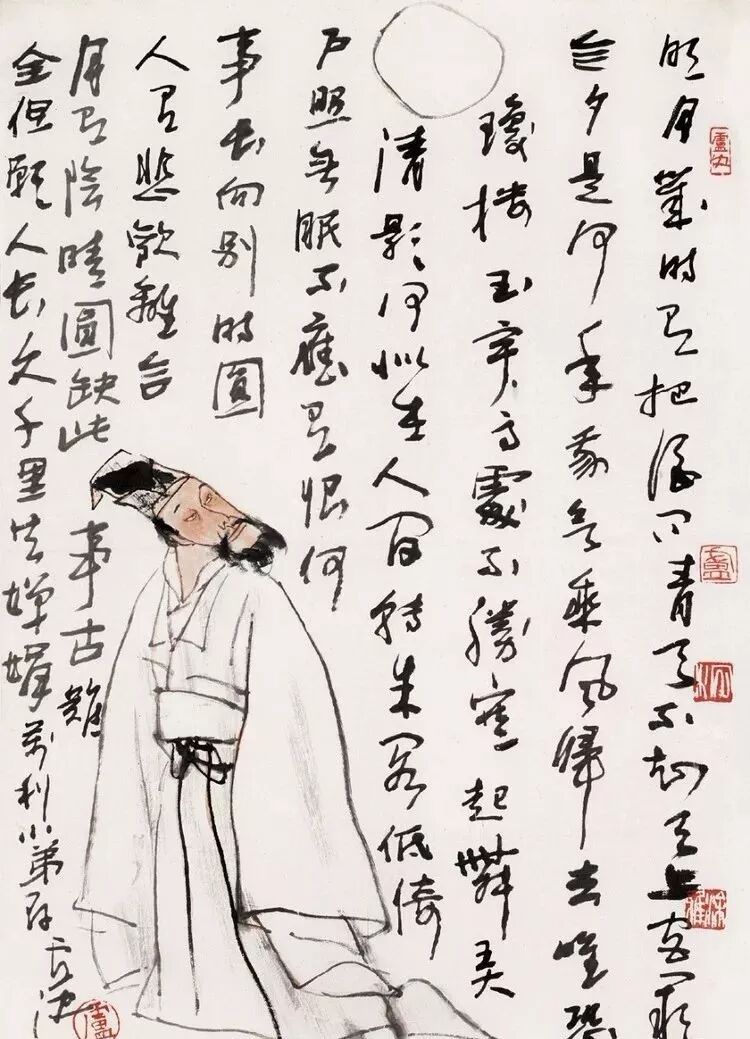 明月幾時有把酒问青天不知天上宫闕
今夕是何年我欲乘风歸去唯恐
瓊樓玉宇高處不勝寒起舞弄
清影何似在人间轉朱阁低倚
户照無眠不應有恨何
事長向别時圓
人有悲歡離合
月有陰晴圓缺此事古難
全但願人長久千里共嬋娟萬利小弟存